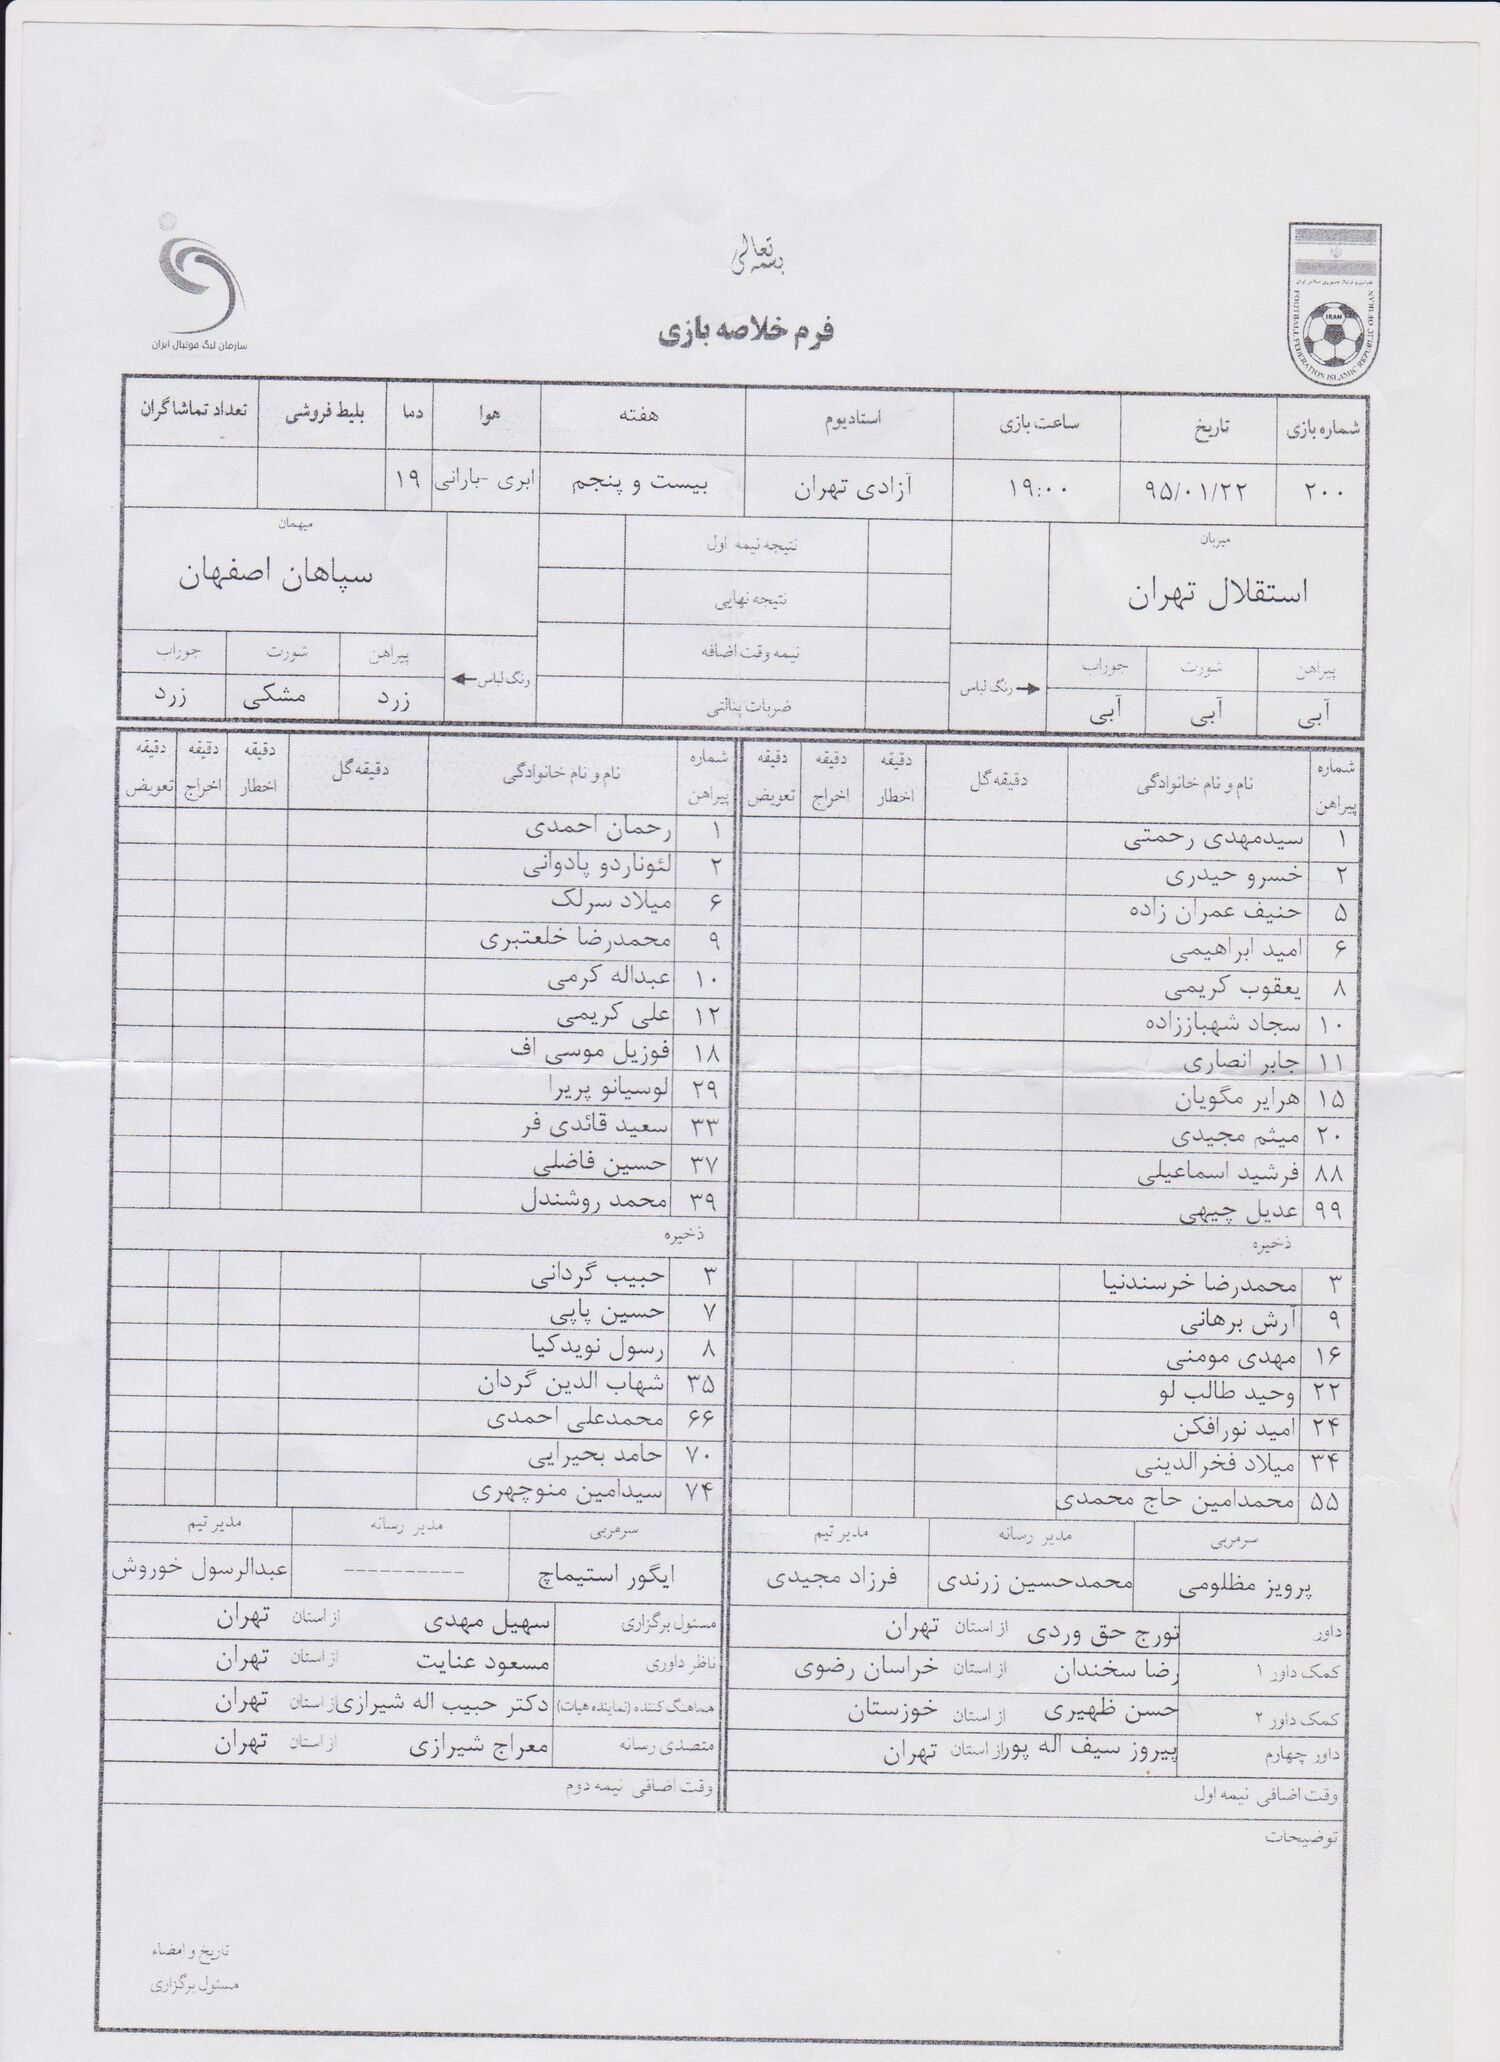 بسمه تعالی
فرم خلاصه بازی
سازمان لیگ فوتبال ایران
فدراسیون فوتبال جمهوری اسلامی ایران
IRAN
FOOTBALL FEDERATION ISLAMIC REPUBLIC OF IRAN
شماره بازی تاریخ ساعت بازی استادیوم هفته هوا دما بلیط فروشی تعداد تماشاگران
۲۰۰ ۹۵/۰۱/۲۲ ۱۹:۰۰ آزادی تهران بیست و پنجم ابری -بارانی ۱۹
میزبان نتیجه نیمه اول میهمان
استقلال تهران نتیجه نهایی سپاهان اصفهان
پیراهن شورت جوراب رنگ لباس نیمه وقت اضافه رنگ لباس پیراهن شورت جوراب
آبی آبی آبی ضربات پنالتی زرد مشکی زرد
شماره پیراهن نام و نام خانوادگی دقیقه گل دقیقه اخطار دقیقه اخراج دقیقه تعویض شماره پیراهن نام و نام خانوادگی دقیقه گل دقیقه اخطار دقیقه اخراج دقیقه تعویض
۱ سیدمهدی رحمتی ۱ رحمان احمدی
۲ خسرو حیدری ۲ لئوناردو پادوانی
۵ حنیف عمران زاده ۶ میلاد سرلک
۶ امید ابراهیمی ۹ محمدرضا خلعتبری
۸ یعقوب کریمی ۱۰ عبداله کرمی
۱۰ سجاد شهباززاده ۱۲ علی کریمی
۱۱ جابر انصاری ۱۸ فوزیل موسی اف
۱۵ هرایر مگویان ۲۹ لوسیانو پریرا
۲۰ میثم مجیدی ۳۳ سعید قائدی فر
۸۸ فرشید اسماعیلی ۳۷ حسین فاضلی
۹۹ عدیل چیهی ۳۹ محمد روشندل
ذخیره ذخیره
۳ محمدرضا خرسندنیا ۳ حبیب گردانی
۹ آرش برهانی ۷ حسین پاپی
۱۶ مهدی مومنی ۸ رسول نویدکیا
۲۲ وحید طالب لو ۳۵ شهاب الدین گردان
۲۴ امید نورافکن ۶۶ محمدعلی احمدی
۳۴ میلاد فخرالدینی ۷۰ حامد بحیرایی
۵۵ محمدامین حاج محمدی ۷۴ سیدامین منوچهری
سرمربی مدیر رسانه مدیر تیم سرمربی مدیر رسانه مدیر تیم
پرویز مظلومی محمدحسین زرندی فرزاد مجیدی ایگور استیماچ ---------- عبدالرسول خوروش
داور تورج حق وردی از استان تهران مسئول برگزاری سهیل مهدی از استان تهران
کمک داور ۱ رضا سخندان از استان خراسان رضوی ناظر داوری مسعود عنایت از استان تهران
کمک داور ۲ حسن ظهیری از استان خوزستان هماهنگ کننده (نماینده هیات) دکتر حبیب اله شیرازی از استان تهران
داور چهارم پیروز سیف اله پور از استان تهران متصدی رسانه معراج شیرازی از استان تهران
وقت اضافی نیمه اول وقت اضافی نیمه دوم
توضیحات
تاریخ و امضاء
مسئول برگزاری